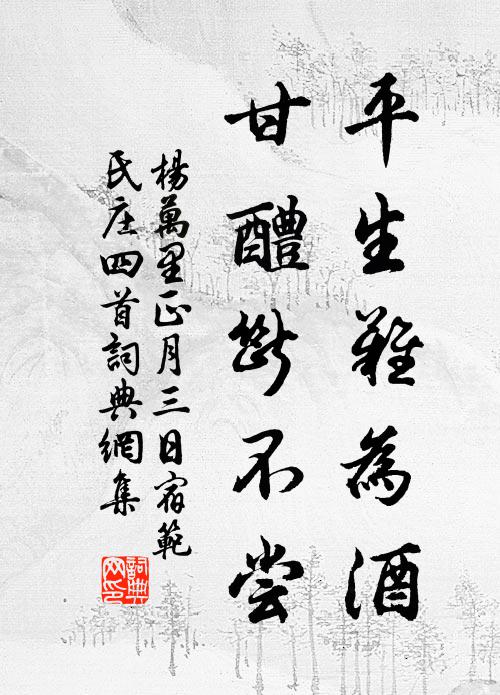 平生難為酒
甘醴斷不嘗
楊萬里正月三日宿範
氏庄四首詞典網集
詞典网印